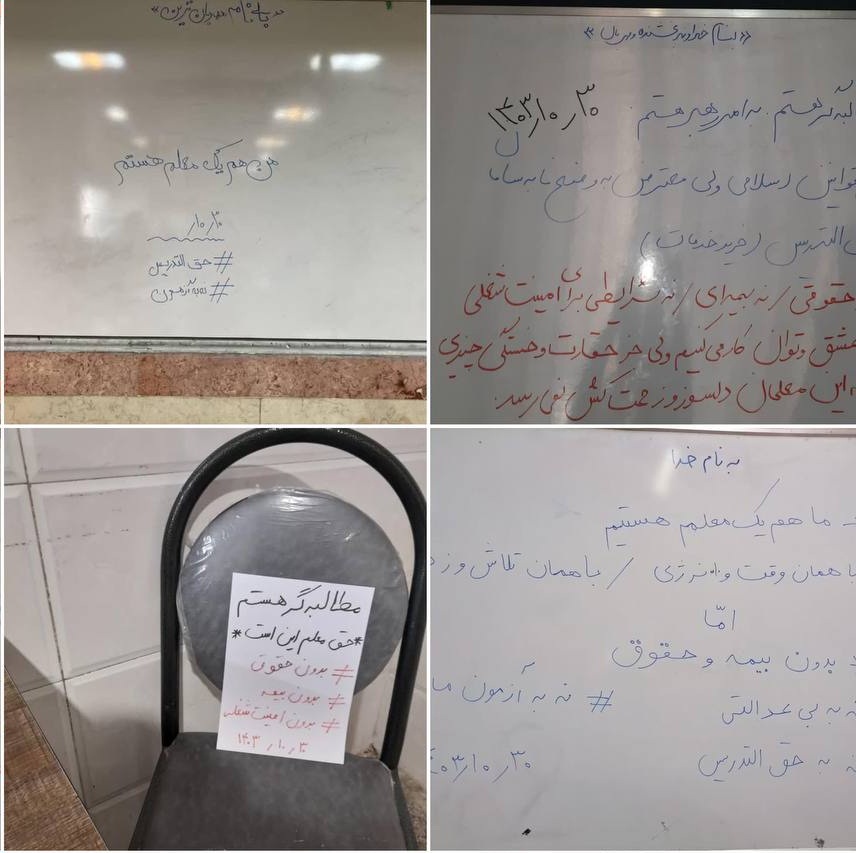 من هم یک معلم هستم
۳۰ر۱۰ر
# حق التدریس
# نه به آزمون
«بنام خداوند بخشنده و مهربان»
البه گر هستم. به امر رهبر هستم ۳۰ر۱۰ر۱۴۰۳
قوانین اسلامی ولی معترض به وضع نابه ساما
التدریس (خرید خدمات)
حقوقی / نه بیمه ای / نه شرایطی برای امنیت شغلی
عشق و توان کار می کنیم ولی جز حقارت و خستگی چیزی
به این معلمان دلسوز و زحمت کش نمی رسد.
مطالبه گر هستم
*حق معلم این است*
# بدون حقوق
# بدون بیمه
# بدون امنیت شغلی
۳۰ر۱۰ر۱۴۰۳
به نام خدا
- ما هم یک معلم هستیم
با همان وقت و انرژی / با همان تلاش و ز
امّا
بدون بیمه و حقوق
# نه به آزمون ما
نه به بی عدالتی
نه به حق التدریس
۳۰ر۱۰ر۰۳